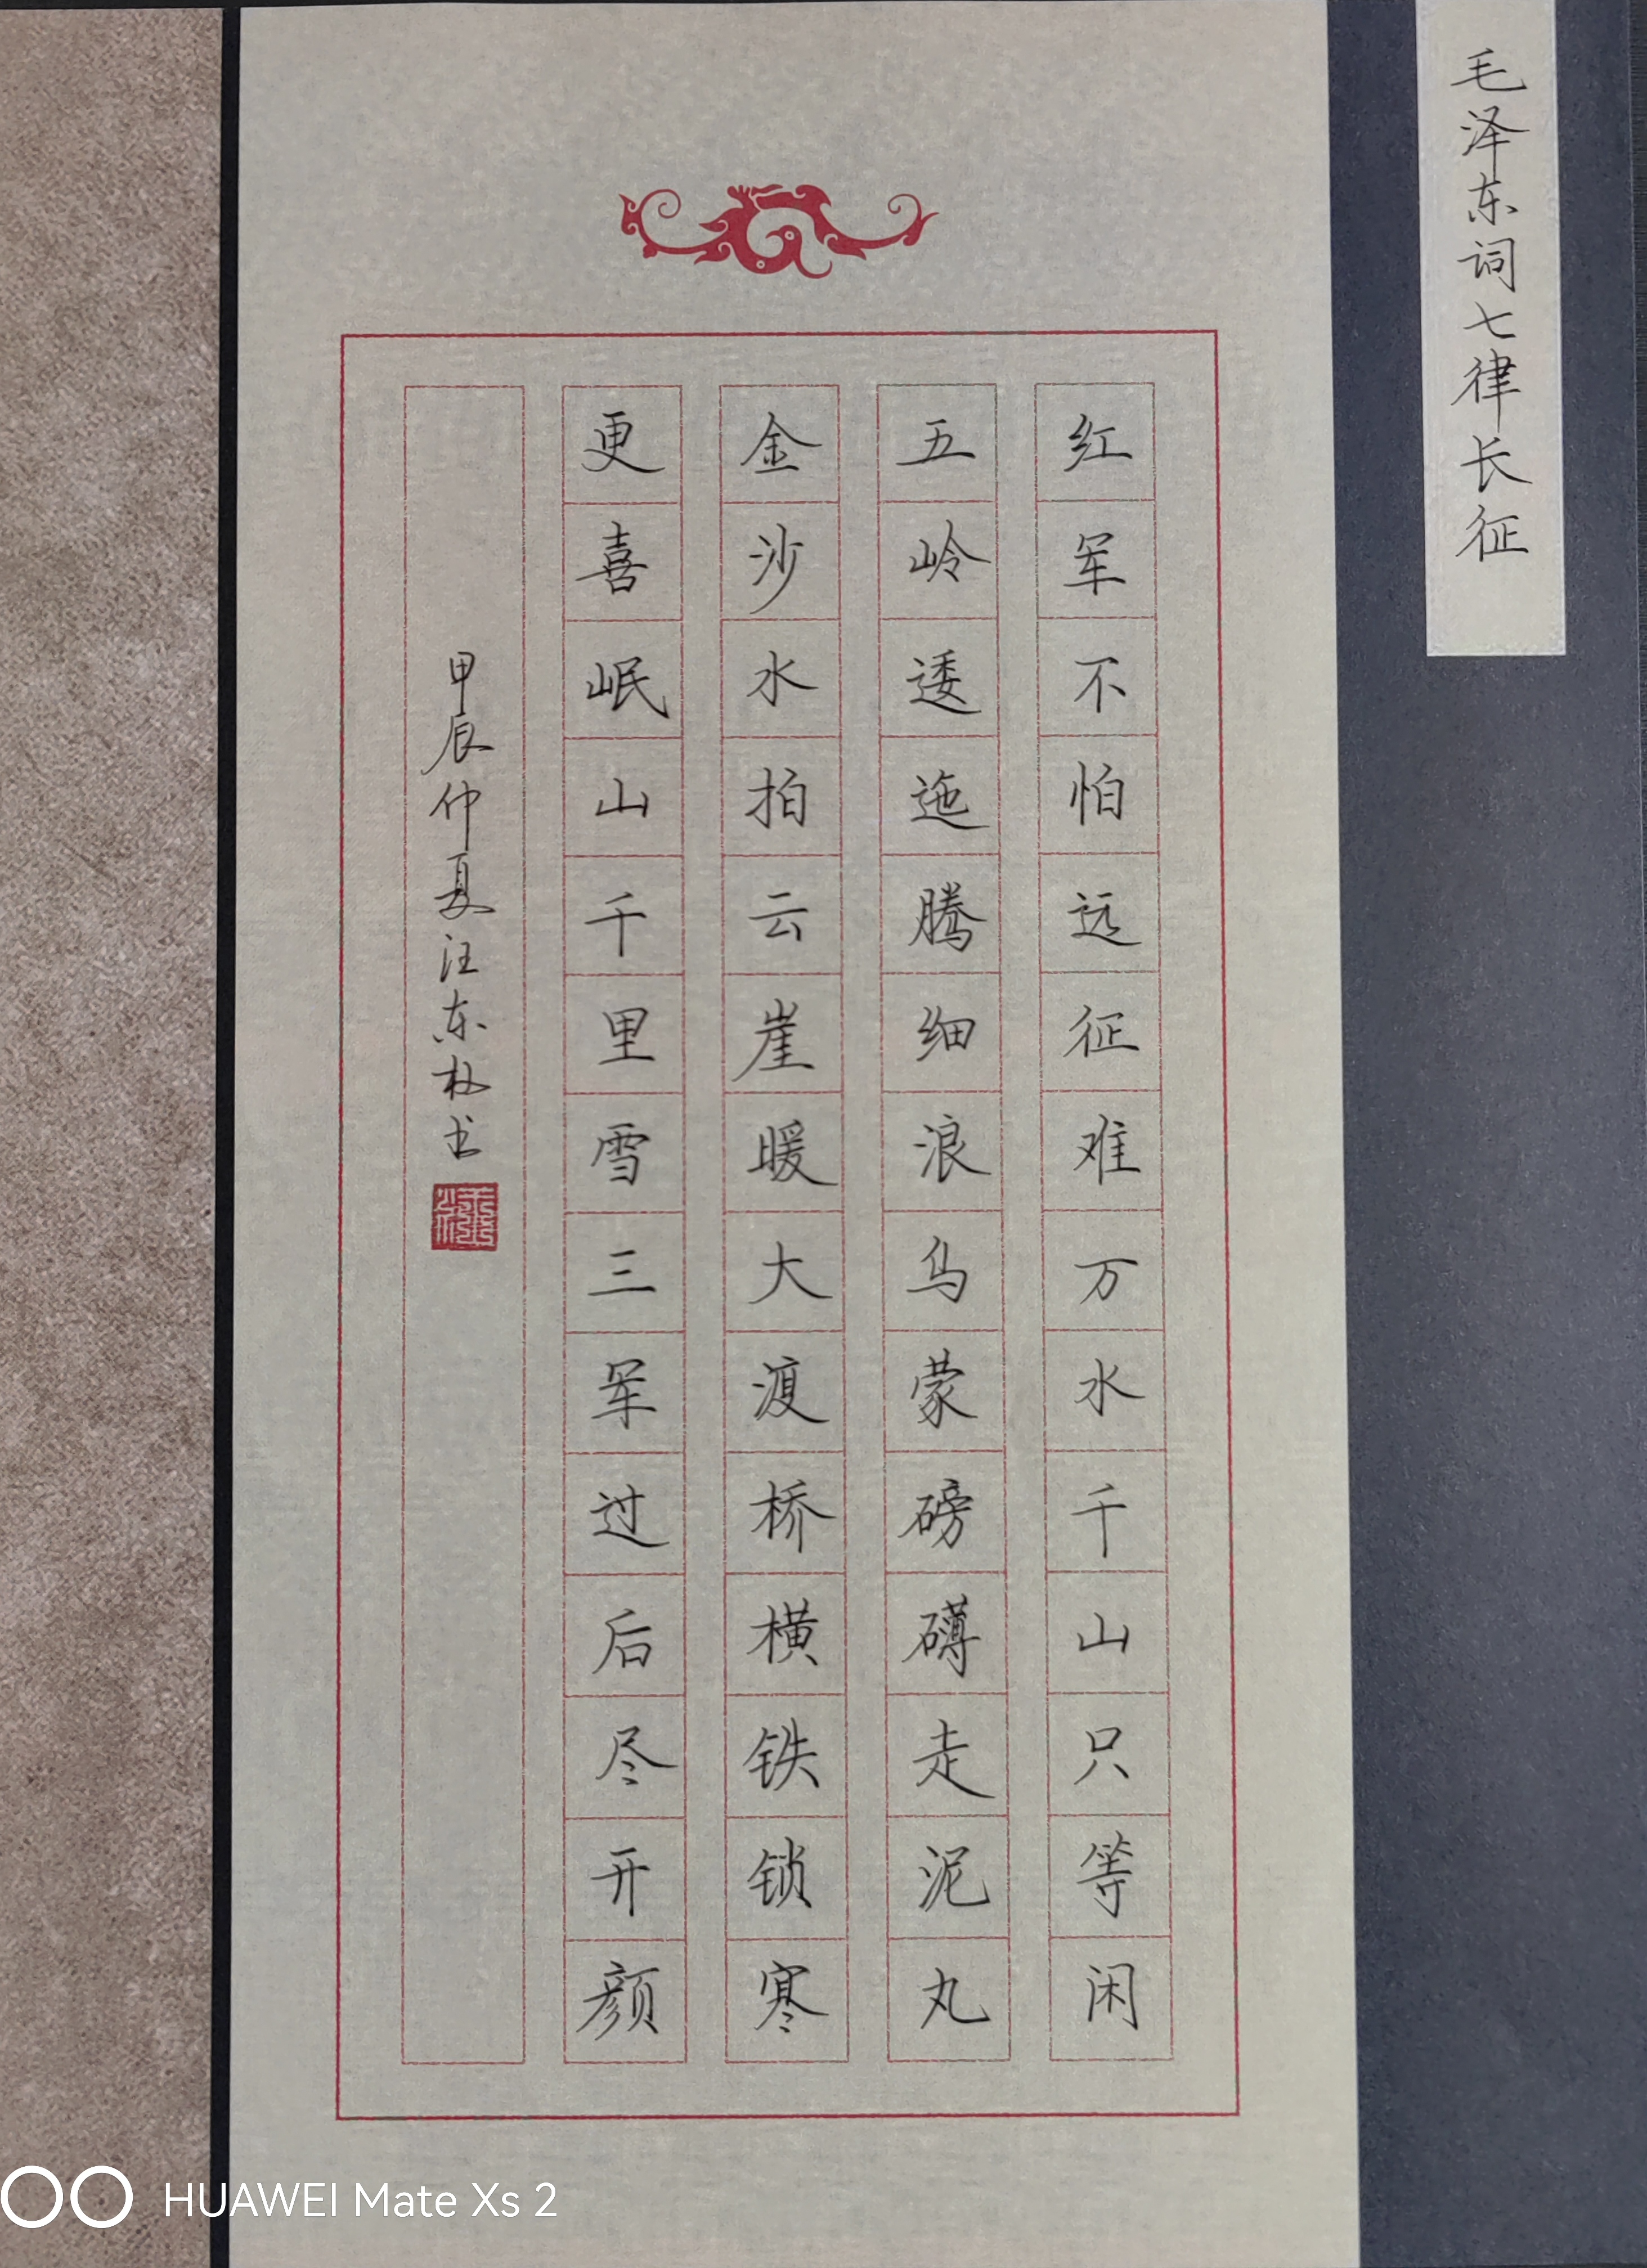 毛泽东词七律长征
红军不怕远征难万水千山只等闲
五岭逶迤腾细浪乌蒙磅礴走泥丸
金沙水拍云崖暖大渡桥横铁锁寒
更喜岷山千里雪三军过后尽开颜
甲辰仲夏汪东书
HUAWEI Mate Xs 2